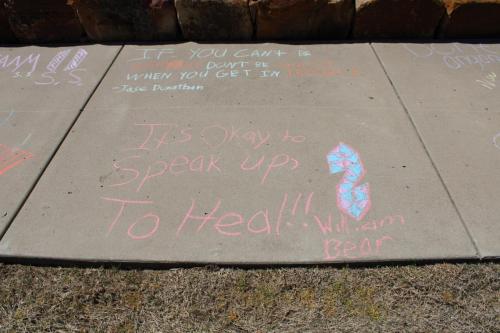 IF YOU CAN'T BE
DON'T BE
WHEN YOU GET IN
- Jase Donathan
S.S
S.S
It's Okay to
Speak up,
To Heal!!
William
Bear